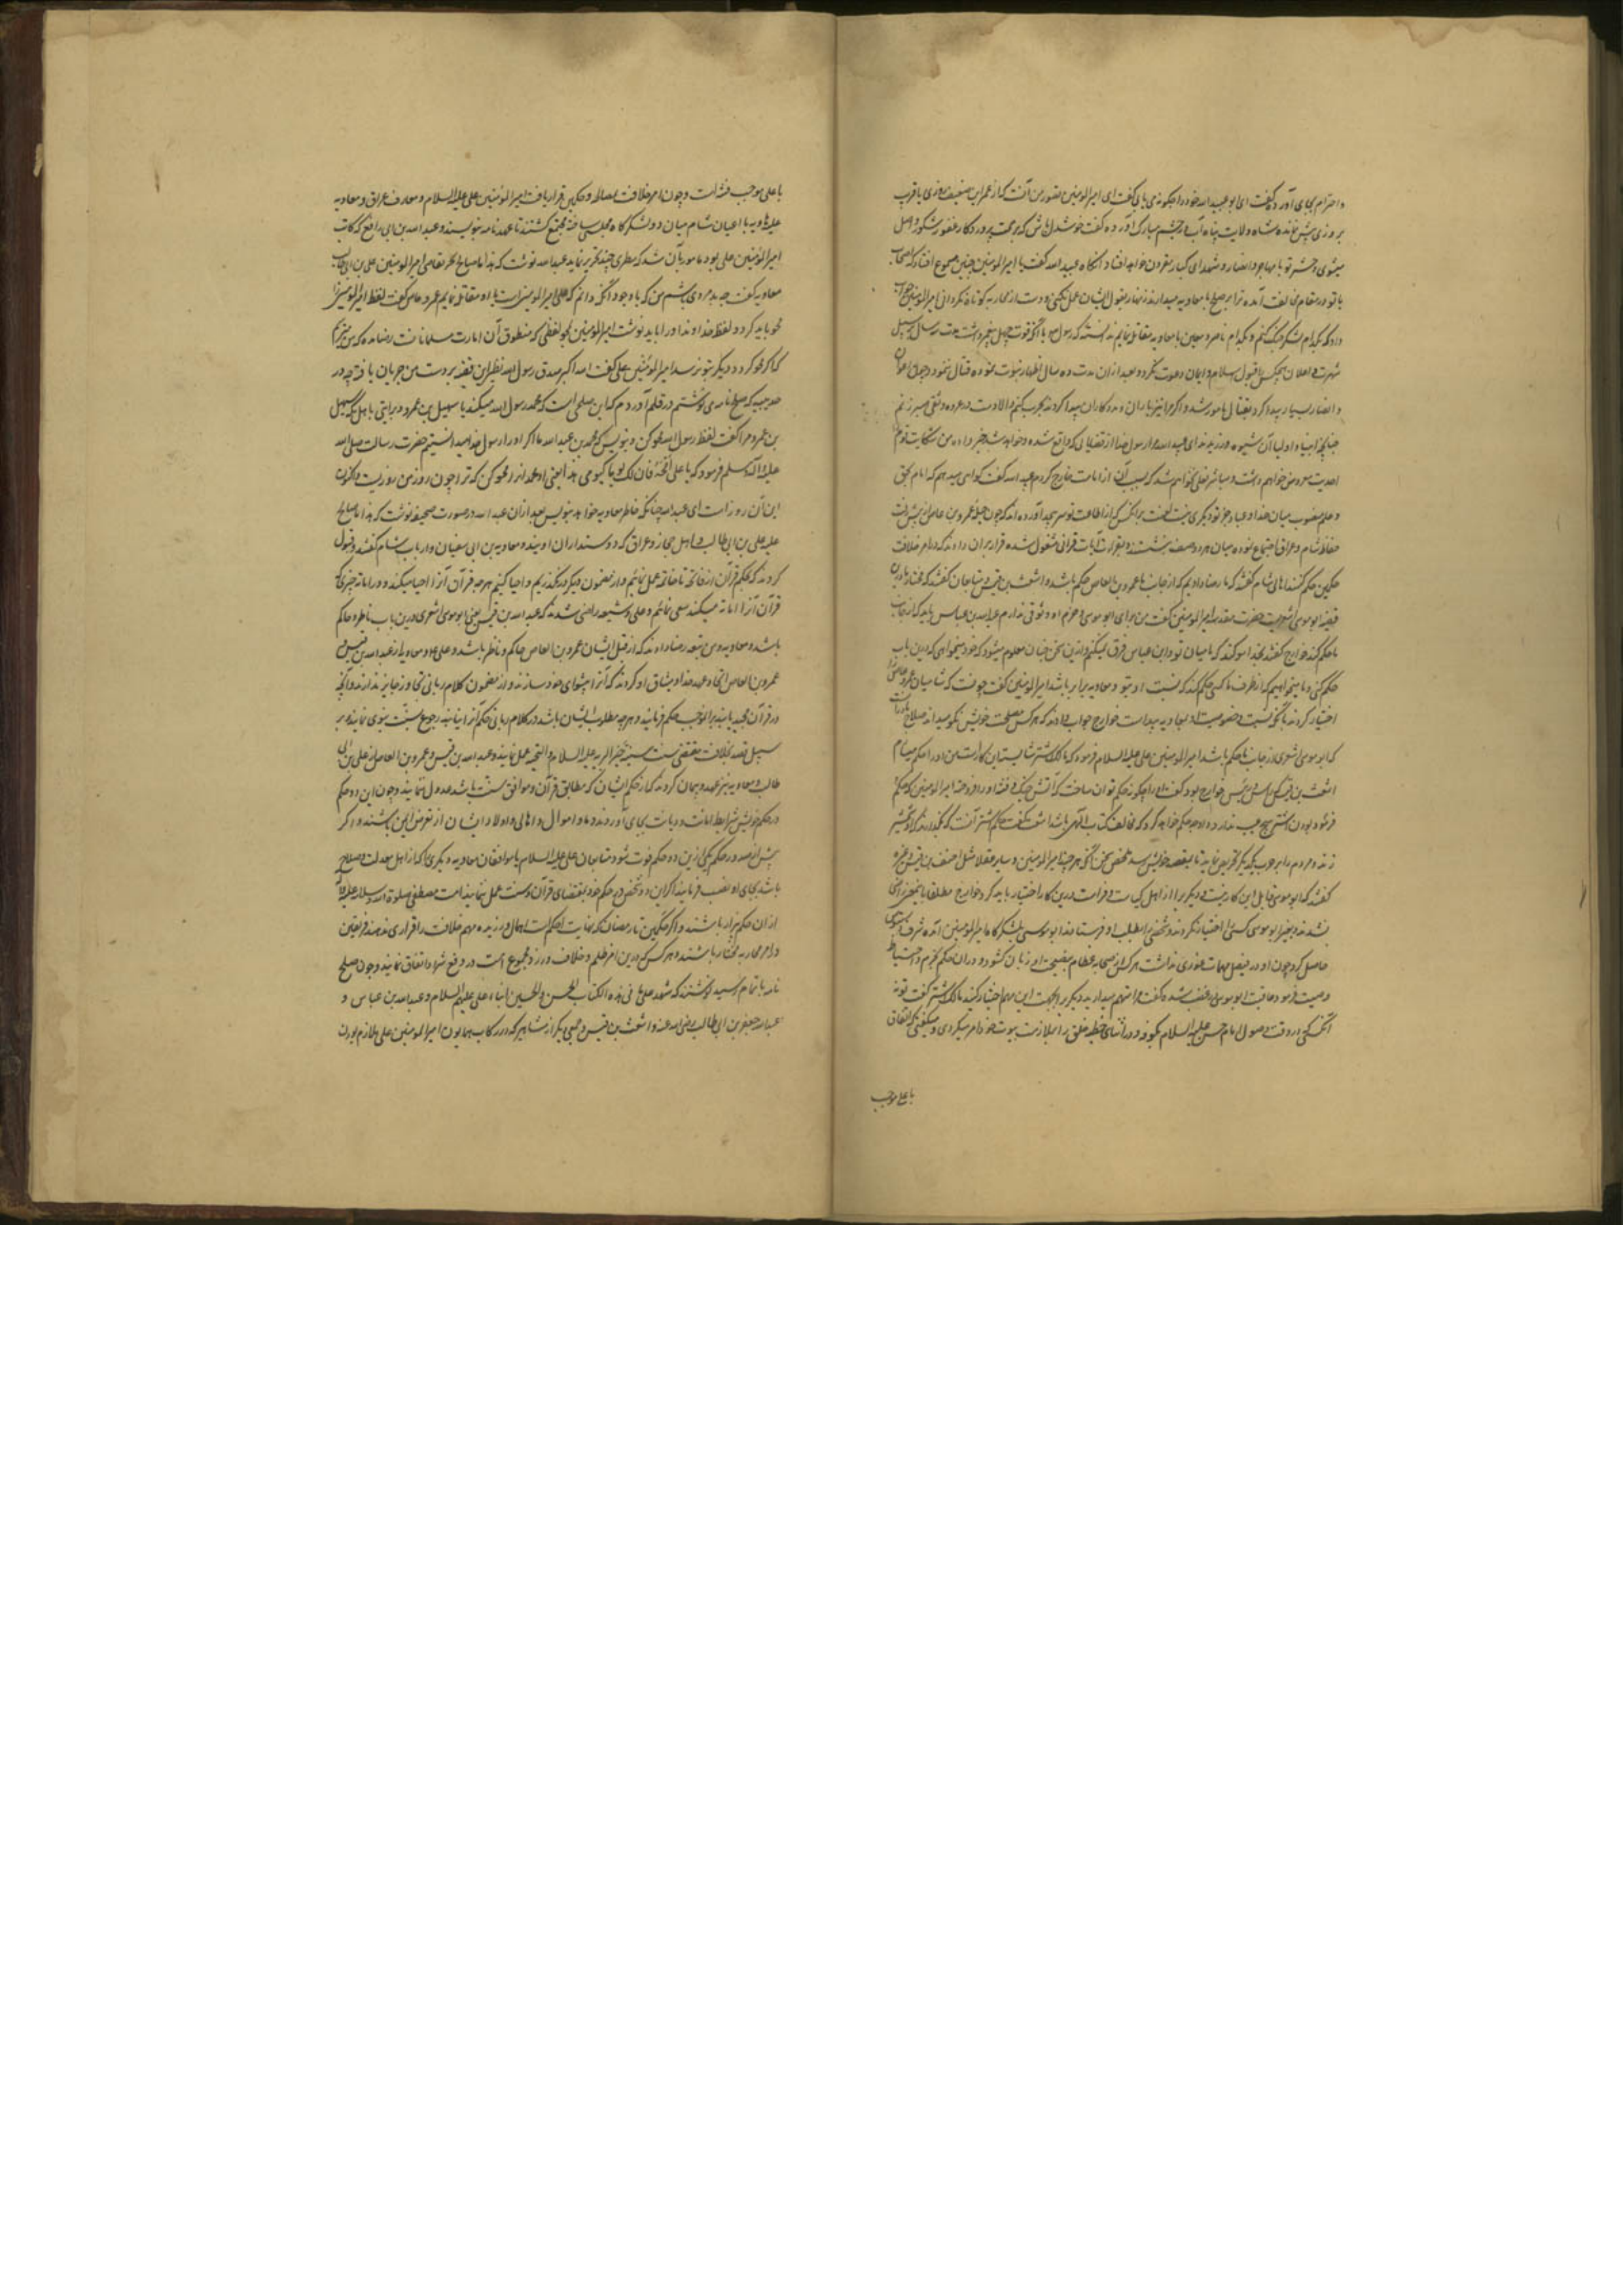 و احترام بجای آورد و گفت ای ابو عبید الله خود را چگونه می یابی گفت ای امیر المؤمنین
بروزی پیش نمانده شاه ولایت پناه آب در چشم مبارک آورده گفت خوشدل باش که برحمت پروردکار غفور شکور واصل
میشوی و حشر تو با مهاجر و انصار و شهدای کبار مقرون خواهد افتاد آنکاه عبید الله گفت یا امیر المؤمنین چنین مسموع افتاد که اصحاب
با تو در مقام مخالفت آمده ترا بر صلح با معاویه میدارند زنهار بقول ایشان عمل نکنی و دست از محاربه کوتاه نکردانی امیر المؤمنین جواب
داد که بکدام لشکر جنک کنم و بکدام ناصر و معین با معاویه مقاتله نمایم
شهرت و اعلان هیچکس را بقبول اسلام و ایمان دعوت نکرد و بعد از ان مدت ده سال اظهار نبوت نموده قتال ننمود و چون اعوان
و انصار بسیار پیدا کرد بقتال مامور شد و اکر مرا نیز یاران و مددکاران پیدا کردند حرب کنم والا دست در عروه وثقی صبر زنم
چنانچه انبیا و اولیا آن شیوه ورزیدند ای عبید الله مرا رسول خدا از قضایای که واقع شده و خواهد شد خبر داده من شکایت قوم
گفت گواهی میدهم که امام بحق
و علم منصوب میان خدا و عباد جز تو دیگری نیست لعنت بر انکس که از اطاعت تو سر بپیچد آورده اند که چون حیله عمرو بن عاص از پیش رفت
حفاظ شام و عراق اجتماع نموده میان هر دو صف نشستند و بقراءت آیات قرانی مشغول شده قرار بران دادند که در امر خلافت
حکمین حکم کنند اهالی شام گفتند که ما رضا دادیم که از جانب ما عمرو بن العاص حکم باشد و اشعث بن قیس و متابعان گفتند که مختار ما درین
قضیه ابو موسی اشعریست حضرت مقدسه امیر المؤمنین گفت من بر رای ابو موسی و حزم او وثوقی ندارم عبد الله بن عباس باید که از جانب
ما حکم کند خوارج گفتند بخدا سوکند که ما میان تو و ابن عباس فرق نمیکنیم و ازین سخن چنان معلوم میشود که خود میخواهی که درین باب
حکم کنی و ما میخواهیم که از طرف ما کسی حکم کند که نسبت او بتو و معاویه برابر باشد امیر المؤمنین گفت چونست که شامیان عمرو عاص را
اختیار کردند خوارج جواب دادند که هر کس مصلحت خویش نکو میداند
که ابو موسی اشعری از جانب ما حکم باشد امیر المؤمنین علی علیه السلام فرمود که مالک اشتر شایسته این کارست من او را حکم میسازم
اشعث بن قیس که رئیس خوارج بود گفت او را چگونه حکم توان ساخت که آتش جنک و فتنه او افروخته امیر المؤمنین
زند و مردم را بر حرب یکدیکر تحریص نماید تا بمقصد خویش رسد ملخص سخن آنکه هر چند امیر المؤمنین و سایر عقلا مثل احنف بن قیس و غیره
گفتند که ابو موسی قابل این کار نیست دیگری را از اهل کیاست و فراست درین کار اختیار باید کرد خوارج مطلقا باین سخن راضی
نشدند و بغیر ابو موسی کسی را اختیار نکردند و شخصی را بطلب او فرستادند ابو موسی بلشکرکاه امیر المؤمنین آمده شرف دستبوس
حاصل کرد چون او در فیصل مهمات غوری نداشت هر کس از صحابه عظام بنصیحت او زبان کشود و دران حکم بحزم و احتیاط
وصیت فرمود عاقبت ابو موسی در غضب شده گفت مرا متهم میدارید دیگری را بجهت این مهم اختیار کنید مالک اشتر گفت تو نه
آنکسی که در وقت وصول امام حسن علیه السلام بکوفه در اثنای خطبه خلق را بملازمت بیوت خود امر میکردی و میگفتی که اتفاق
با علی موجب
با علی موجب فتنه است و چون امر خلافت بصلح و حکمین قرار یافت امیر المؤمنین علی علیه السلام و معارف عراق و معاویه
علیه الهاویه با اعیان شام میان دو لشکرکاه مجلسی ساخته مجتمع کشتند تا عهد نامه بنویسند و عبد الله بن ابی رافع که کاتب
امیر المؤمنین علی بود مامور بآن شد که سطری چند تحریر نماید عبد الله نوشت که هذا ما صالح امیر المؤمنین علی بن ابی طالب
معاویه گفت چه بد مردی باشم من که با وجود آنکه دانم که علی امیر المؤمنین است با او مقاتله نمایم عمرو عاص گفت لفظ امیر المؤمنین را
محو باید کرد
که اگر محو کرد و دیکر بتو نرسد امیر المؤمنین علی گفت الله اکبر صدق رسول الله نظیر این قضیه بر دست من جریان یافته چه در
حدیبیه که صلح نامه می نوشتم در قلم آوردم که این صلحی است که محمد رسول الله میکند با سهیل بن عمرو و براوایتی با اهل مکه سهیل
بن عمرو مرا گفت لفظ رسول الله محو کن و بنویس که محمد بن عبد الله ما اکر او را رسول خدا میدانستیم حضرت رسالت صلی الله
علیه و آله و سلم فرمود که یا علی امحه فان لک یوما کیومی هذا یعنی او محمد انرا محو کن که ترا چون روز من روزیست و اکنون
این آن روز است ای عبد الله چنانکه خاطر معاویه خواهد بنویس بعد ازان عبد الله در صورت صحیفه نوشت که هذا ما صالح
علیه علی بن ابی طالب و اهل حجاز و عراق که دوستداران اویند و معاویه بن ابی سفیان و ارباب شام گفتند و قبول
کردند که بحکم قرآن از فاتحه تا خاتمه عمل نمائیم و از مضمون یکدیکر نگذریم و احیا کنیم هر چه قرآن آنرا احیا میکند و در اماته چیزی که
قرآن آنرا اماته میکند سعی نمائیم و علی و شیعه راضی شدند که عبد الله بن قیس یعنی ابو موسی اشعری درین باب ناظر و حاکم
باشد و معاویه و من تبعه رضا دادند که از قبل ایشان عمرو بن العاص حاکم و ناظر باشد و علی و معاویه از عبد الله بن قیس و
عمرو بن العاص عهد خدا و میثاق او کردند که قرآن را پیشوای خود سازند و از مضمون کلام ربانی تجاوز جایز ندارند و آنچه
در قرآن مجید یابند بر آنموجب حکم فرمایند و هر چه مطلوب ایشان باشد در کلام ربانی حکم آنرا نیابند رجوع بسنت نبوی نمایند و بر
سبیل قصد بخلاف مقتضی سنت سنیه خیر البریه علیه السلام و التحیه عمل ننمایند و عبد الله بن قیس و عمرو بن العاص از علی بن ابی
طالب و معاویه نیز عهد و پیمان کردند که از حکم ایشان که مطابق قرآن و موافق سنت باشد عدول ننمایند و چون این دو حکم
در حکم خویش شرایط امانت و دیانت بجای آوردند دما و اموال و اهالی و اولاد ایشان از تعرض ایمن باشند و اکر
پیش از صدور حکم یکی ازین دو حکم فوت شود متابعان علی علیه السلام یا موافقان معاویه دیگری را که از اهل معدلت و صلاح
باشد بجای او نصب فرمایند اکر این دو شخص در حکم خود بمقتضای قرآن و سنت عمل ننمایند امت مصطفی صلوة الله و سلامه علیه و آله
ازان حکم بیزار باشند و اکر حکمین تا رمضان که نهایت حکم است اهمال ورزیده مهم خلافت را قراری ندهند فریقین
در امر محاربه مختار باشند و هر کس که درین امر ظلم و خلاف ورزد مجموع امت در دفع شر او اتفاق نمایند و چون صلح
نامه باتمام رسید نوشتند که شهد علی ما فی هذه الکتاب الحسن و الحسین ابناء علی علیهم السلام و عبد الله بن عباس و
عبد الله جعفر بن ابی طالب رضی الله عنه و اشعث بن قیس و جمعی دیگر از مشاهیر که در رکاب همایون امیر المؤمنین علی ملازم بودند